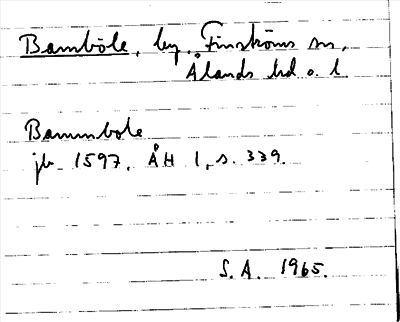 Bamböle, by, Finströms sn,
Ålands hd o. l
Bammbole
jb 1597, ÅH 1, s. 339.
S.A. 1965.